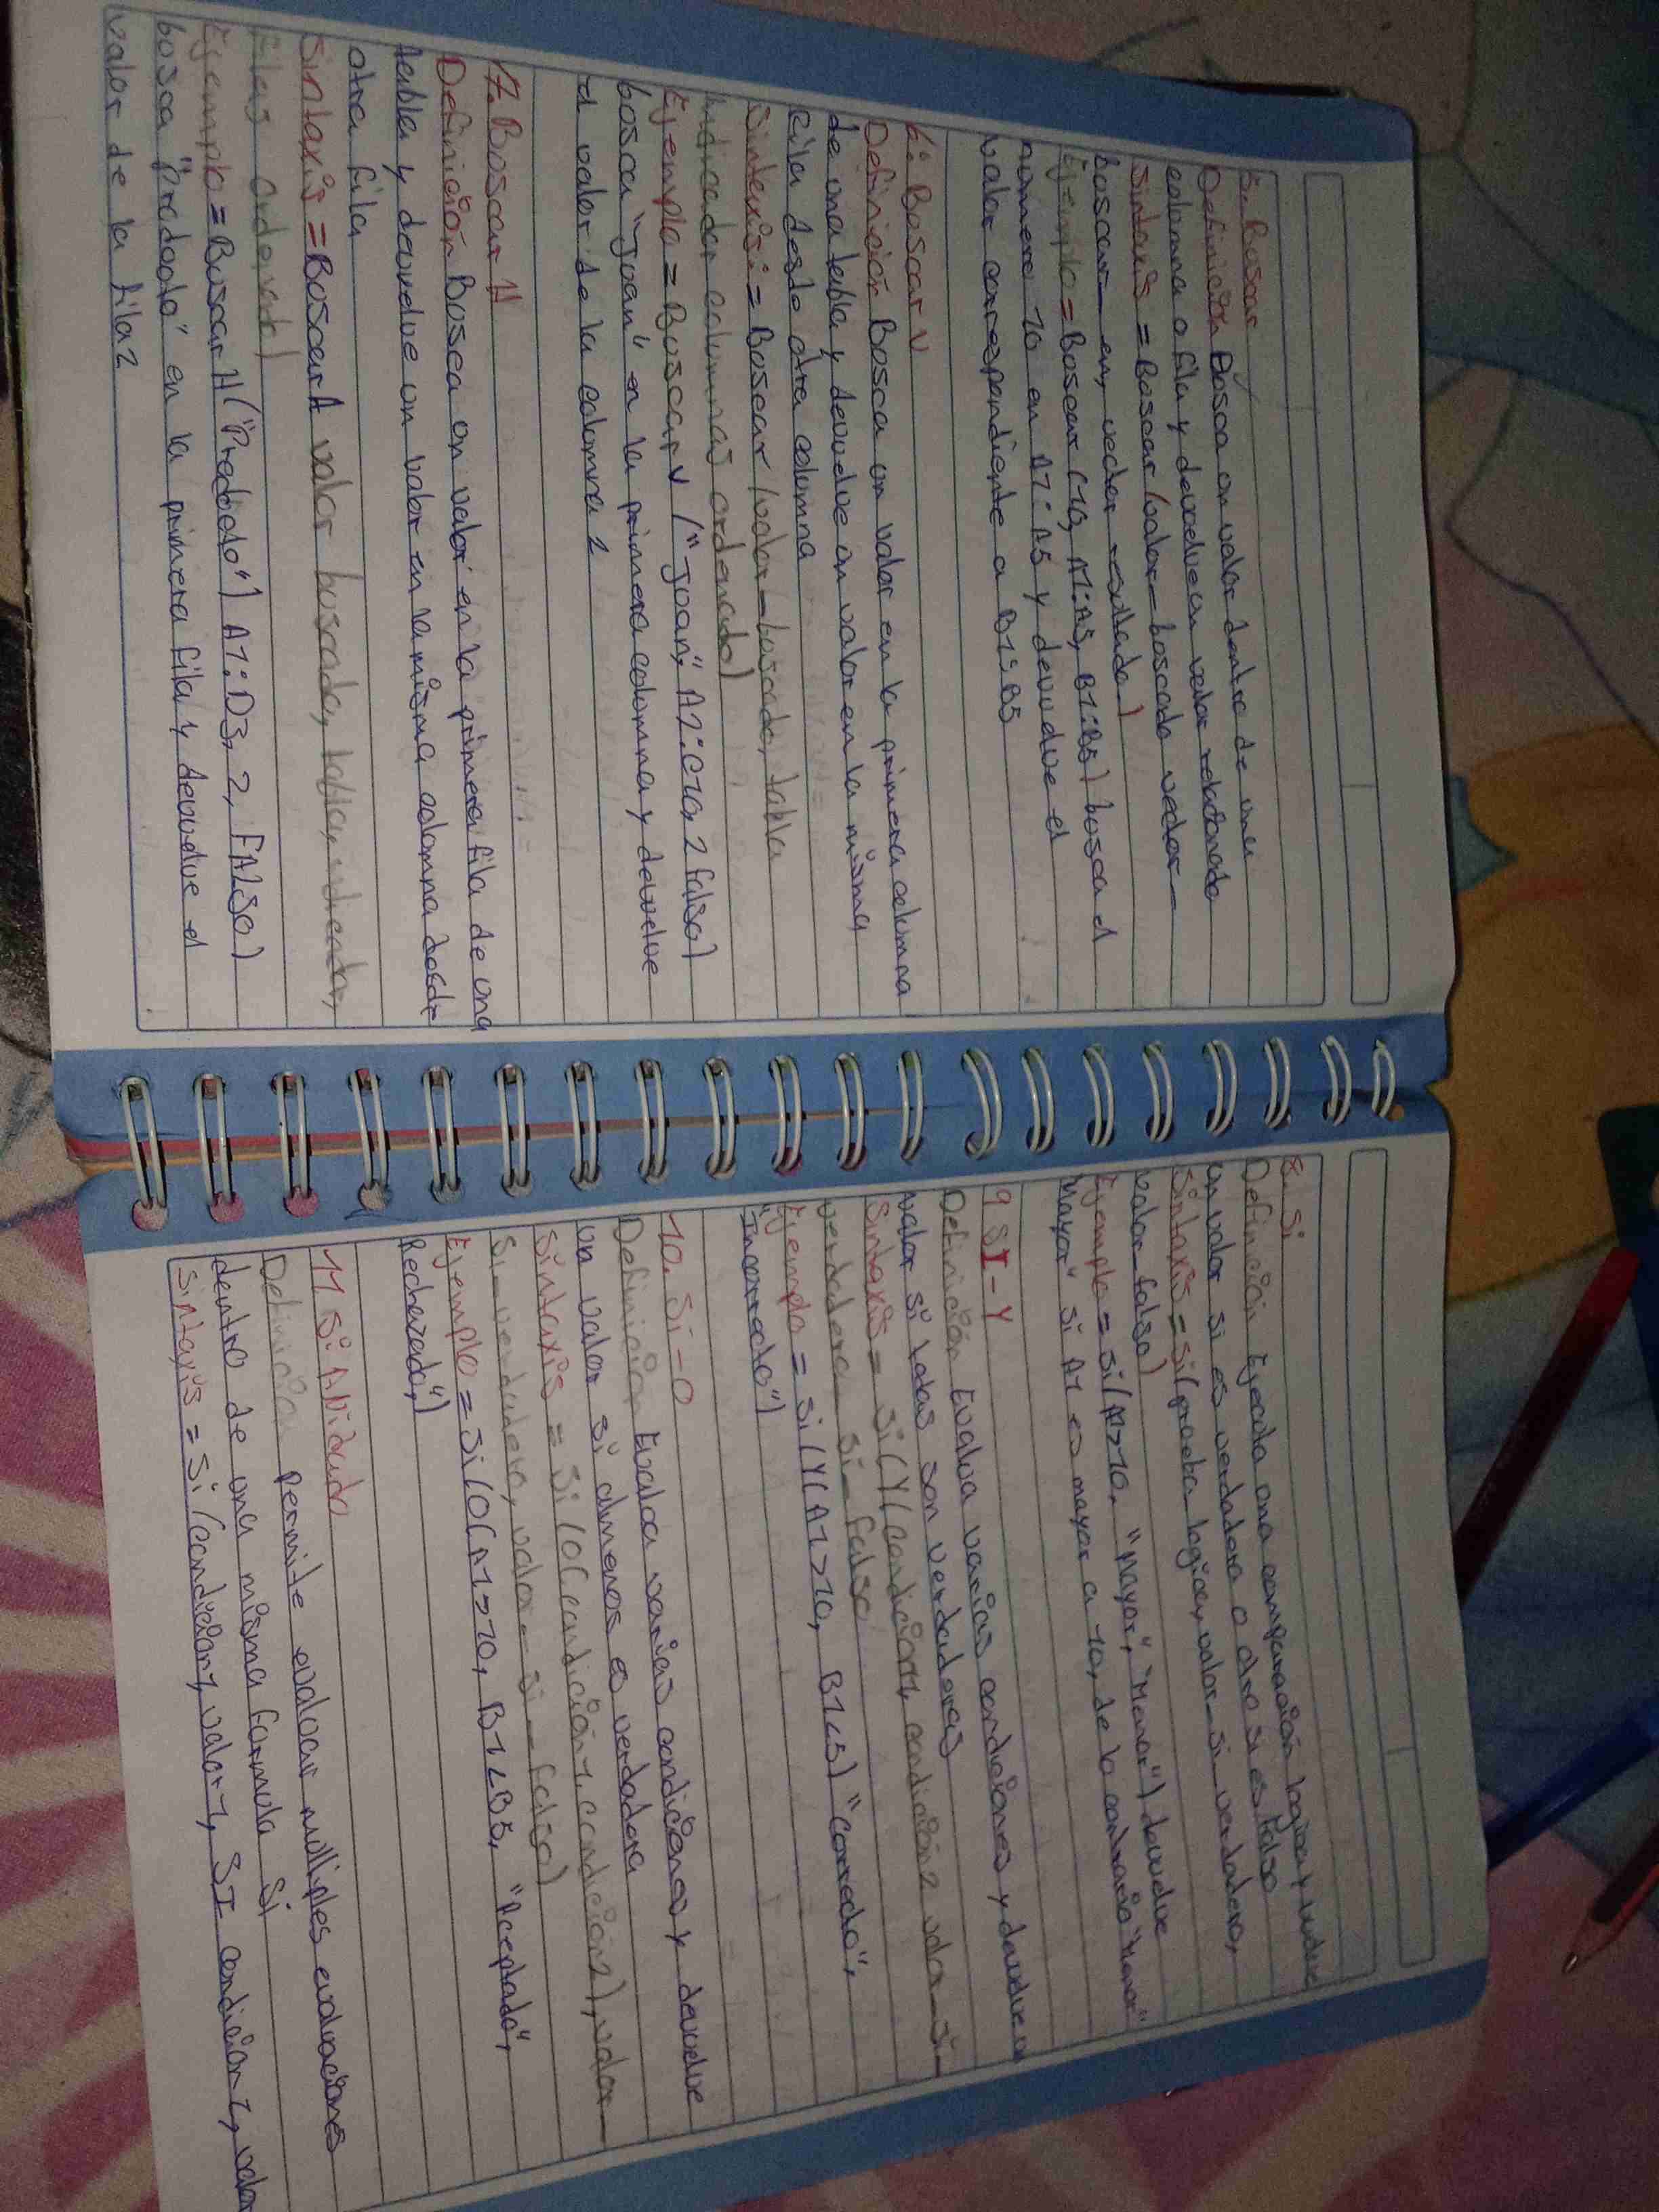 5. Buscar
Definición Busca un valor dentro de una
columna o fila y devuelve un valor relationado
Sintaxis = Buscar (valor_buscado vector_
buscar_en, vector resultado)
Ejemplo = Buscar (10, A1:A5, B1:B5) busca el
numero 10 en A1:A5 y devuelve el
valor correspondiente a B1:B5
6. Buscar V
Definición Busca un valor en la primera columna
de una tabla y devuelve un valor en la misma
Fila desde otra columna
Sintaxis: = Buscar (valor_buscado, tabla
indicador columnas ordenado)
Ejemplo = Buscar v ("Juan", A2:C10, 2 falso)
busca "Juan" en la primera columna y devuelve
el valor de la columna 2
7. Buscar H
Definición Busca un valor en la primera fila de una
tabla y devuelve un valor en la misma columna desde
otra fila
Sintaxis = Buscar A valor buscado, tabla, indicador,
filas ordenado)
Ejemplo = Buscar H ("Prododo") A1:D3, 2, FALSO)
busca "Prododo" en la primera fila y devuelve el
valor de la fila 2
8. Si
Definición Ejecuta una comparación logica y
un valor si es verdadero o otro si es Falso
Sintaxis = Si(prueba logica, valor_si_verdadero,
valor_falso)
Ejemplo = Si(A1>10, "Mayor", "Menor") devuelve
Mayor" si A1 es mayor a 10, de lo contrario "Menor"
9 SI-Y
Definición Evalua varias condiciones y devuelve un
valor si todas son verdaderas
Sintaxis = Si (Y(condicion1, condición 2 valor_si_
verdadero_si_falso
Ejemplo = Si (Y(A1>10, B1<5) "Correcto",
"Incorrecto")
10. Si-O
Definición Evalua varias condiciones y devuelve
un valor si almenos es verdadera
Sintaxis = Si (O(condición1, condicion2), valor_
Si_verdadero, valor_si_falso)
Ejemplo = Si (O(A1>10, B1<B5, "Aceptado",
Rechazado,")
11 Si ANidado
Definición permite evaluar multiples evaluaciones
dentro de una misma formula Si
Sintaxis = Si (condicion1, valor1, SI condicion2, valor